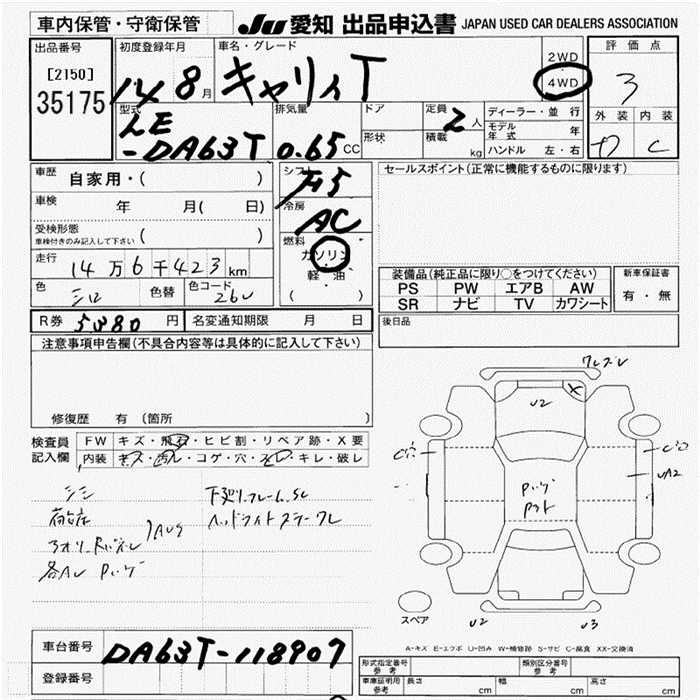 車内保管・守衛保管
JU 愛知 出品申込書 JAPAN USED CAR DEALERS ASSOCIATION
出品番号
[2150]
35175
初度登録年月
14 8月
車名・グレード
キャリイT
2WD
4WD
評価点
3
外装 内装
C
型式
LE
-DA63T
排気量
0.65CC
ドア
形状
定員 2人
積載 kg
ディーラー・並行
モデル年式 年
ハンドル 左・右
車歴 自家用・( )
車検 年 月( 日)
受検形態
車検付きのみ記入して下さい ( )
走行 14万6千423km
色 シロ 色替 色コード 26U
シフト F5
冷房 AC
燃料 ガソリン
軽油
( )
セールスポイント(正常に機能するものに限ります)
装備品(純正品に限り○をつけてください)
PS PW エアB AW
SR ナビ TV カワシート
新車保証書
有・無
R券 5,880円 名変通知期限 月 日
後日品
注意事項申告欄(不具合内容等は具体的に記入して下さい)
修復歴 有 (箇所 )
検査員記入欄
FW キズ・飛石・ヒビ割・リペア跡・X要
内装 キズ・汚れ・コゲ・穴・スレ・キレ・破レ
荷台
下廻りフレームSC
ヘッドライトステーワレ
ワレズレ
U2
X
UA2
スペア
U2 U3
A-キズ E-エクボ U-凹み W-補修跡 S-サビ C-腐食 XX-交換済
車台番号 DA63T-118907
登録番号
形式指定番号 参考
類別区分番号 参考
車庫証明用 参考 長さ cm 幅 cm 高さ cm